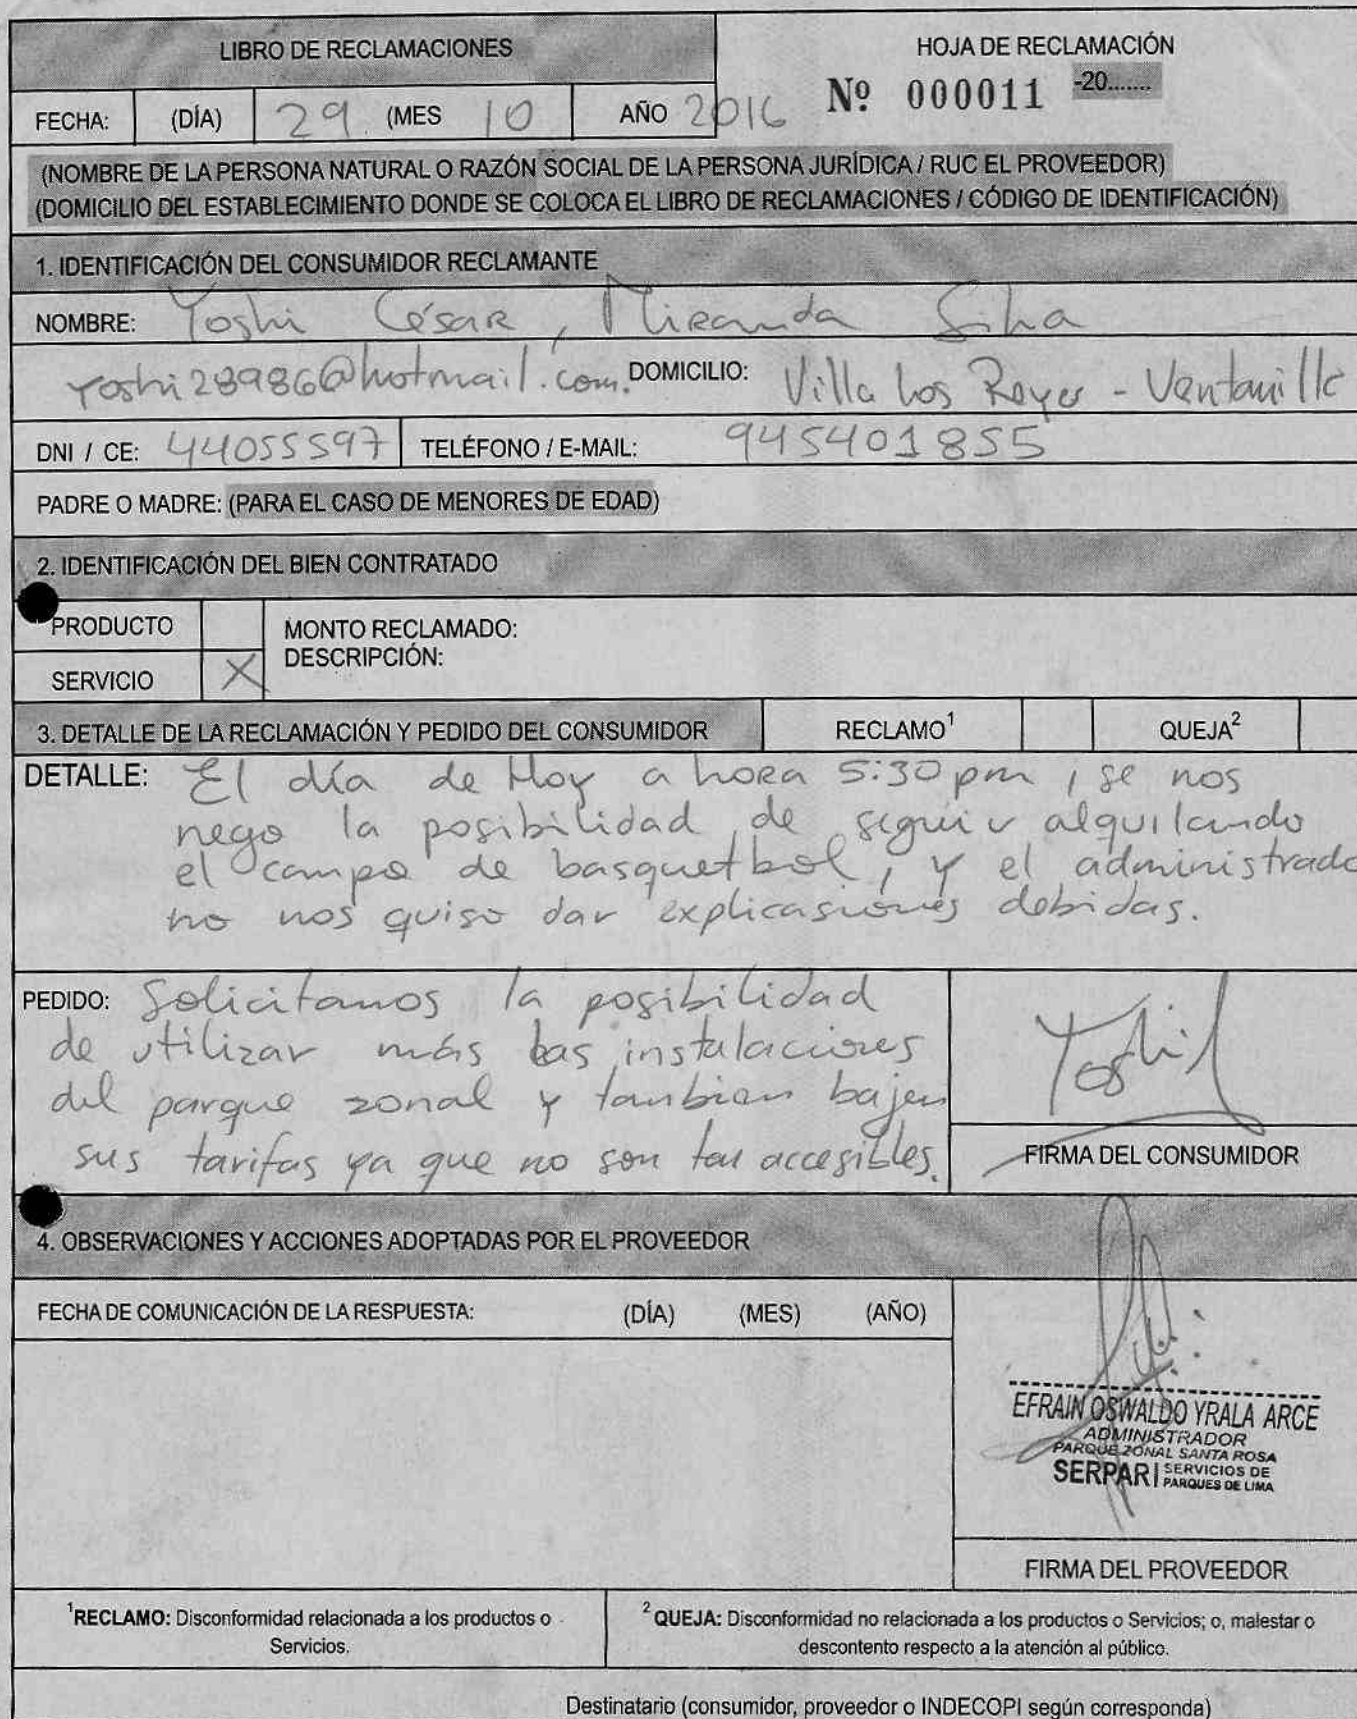 LIBRO DE RECLAMACIONES
HOJA DE RECLAMACIÓN
Nº 000011 -20.......
FECHA: (DÍA) 29 (MES 10 AÑO 2016
(NOMBRE DE LA PERSONA NATURAL O RAZÓN SOCIAL DE LA PERSONA JURÍDICA / RUC EL PROVEEDOR)
(DOMICILIO DEL ESTABLECIMIENTO DONDE SE COLOCA EL LIBRO DE RECLAMACIONES / CÓDIGO DE IDENTIFICACIÓN)
1. IDENTIFICACIÓN DEL CONSUMIDOR RECLAMANTE
NOMBRE: Yoshi César, Miranda Silva
Yoshi28986@hotmail.com. DOMICILIO: Villa Los Reyes - Ventanilla
DNI / CE: 44055597 TELÉFONO / E-MAIL: 945401855
PADRE O MADRE: (PARA EL CASO DE MENORES DE EDAD)
2. IDENTIFICACIÓN DEL BIEN CONTRATADO
PRODUCTO MONTO RECLAMADO:
SERVICIO X DESCRIPCIÓN:
3. DETALLE DE LA RECLAMACIÓN Y PEDIDO DEL CONSUMIDOR RECLAMO¹ QUEJA²
DETALLE: El día de Hoy a hora 5:30 pm, se nos
nego la posibilidad de seguir alquilando
el campo de basquetbol, y el administrado
no nos quiso dar explicasiones debidas.
PEDIDO: Solicitamos la posibilidad
de utilizar más las instalaciones
del parque zonal y tambien bajen
sus tarifas ya que no son tan accesibles.
Yoshi
FIRMA DEL CONSUMIDOR
4. OBSERVACIONES Y ACCIONES ADOPTADAS POR EL PROVEEDOR
FECHA DE COMUNICACIÓN DE LA RESPUESTA: (DÍA) (MES) (AÑO)
EFRAIN OSWALDO YRALA ARCE
ADMINISTRADOR
PARQUE ZONAL SANTA ROSA
SERPAR | SERVICIOS DE
PARQUES DE LIMA
FIRMA DEL PROVEEDOR
¹RECLAMO: Disconformidad relacionada a los productos o
Servicios.
² QUEJA: Disconformidad no relacionada a los productos o Servicios; o, malestar o
descontento respecto a la atención al público.
Destinatario (consumidor, proveedor o INDECOPI según corresponda)